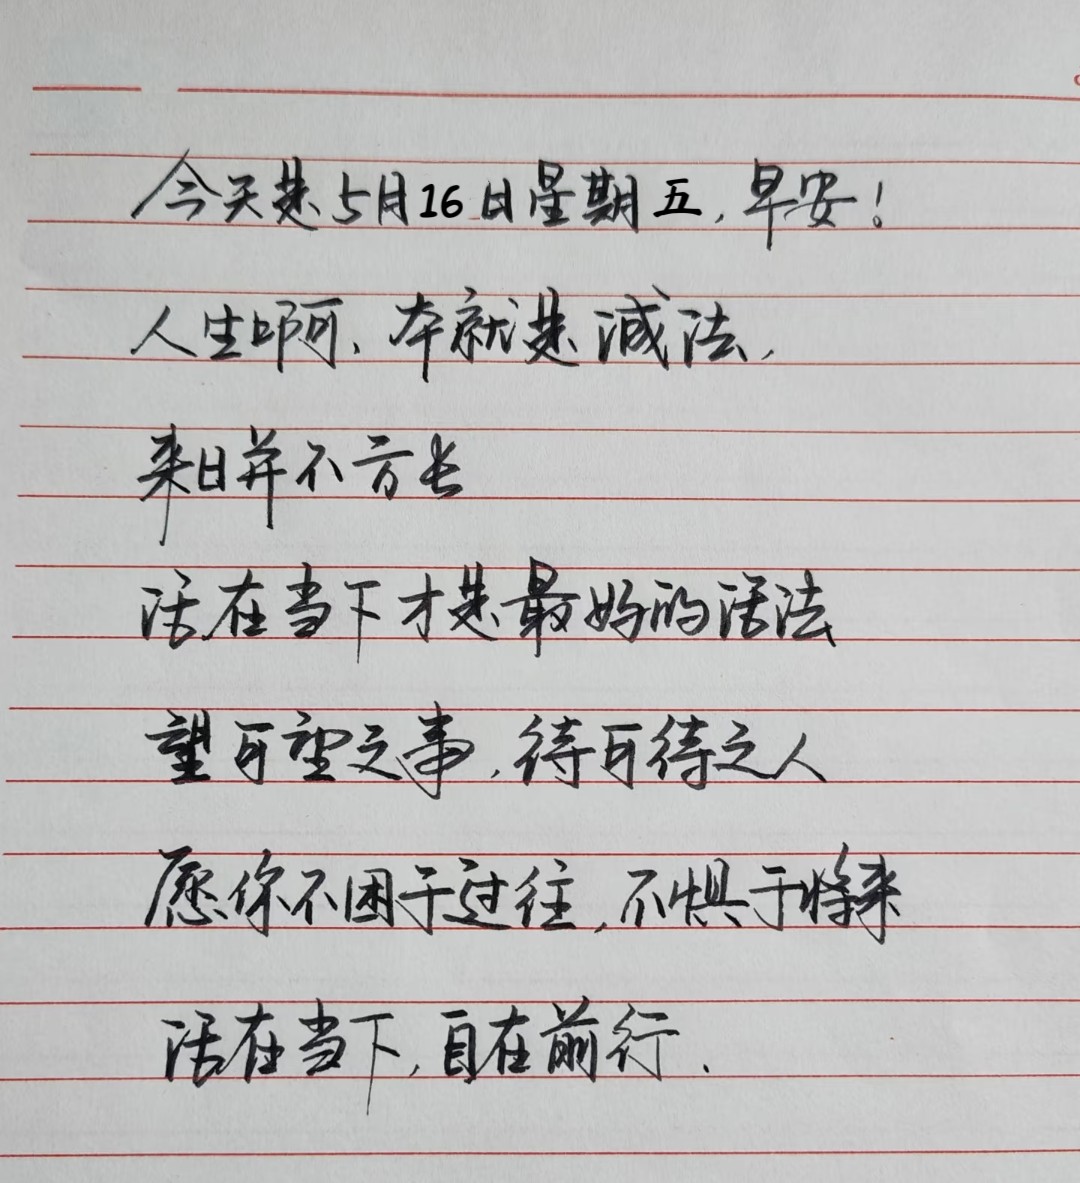 今天是5月16日星期五,早安!
人生啊、本就是减法,
来日并不方长
活在当下才是最好的活法
望可望之事,待可待之人
愿你不困于过往,不惧于将来
活在当下,自在前行.